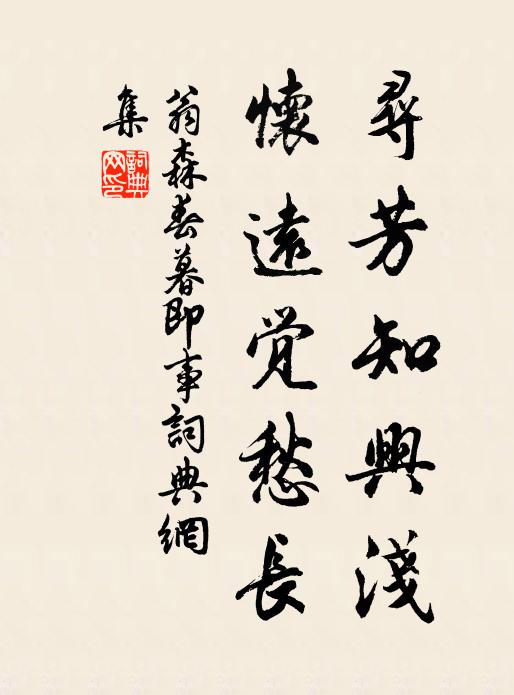 尋芳知興淺
懷遠覺愁長
翁森春暮即事詞典網
集
詞典
网印